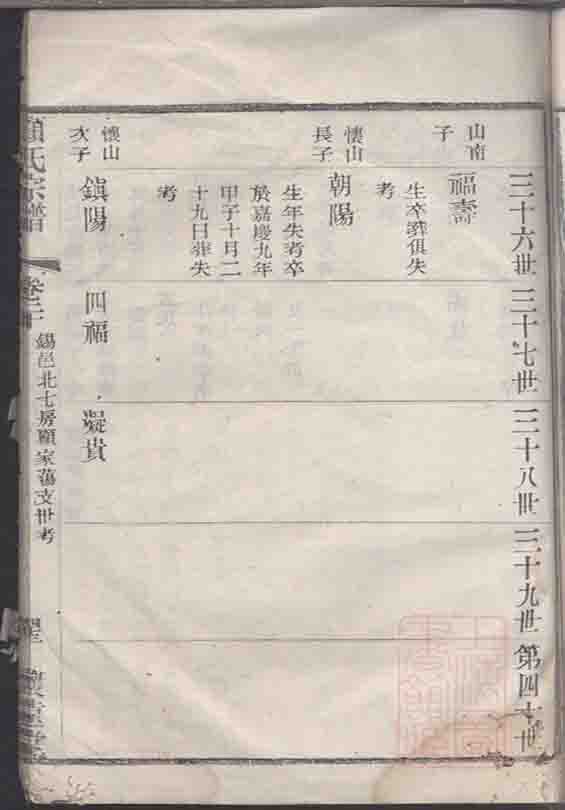 三十六世
三十七世
三十八世
三十九世
第四十世
山南
子
福壽
生卒葬俱失
考
懷山
長子
朝陽
生年失考卒
於嘉慶九年
甲子十月二
十九日葬失
考
懷山
次子
鎮陽
四福
凝貴
顧氏宗譜
卷二
錫邑北七房顧家蕩支世考